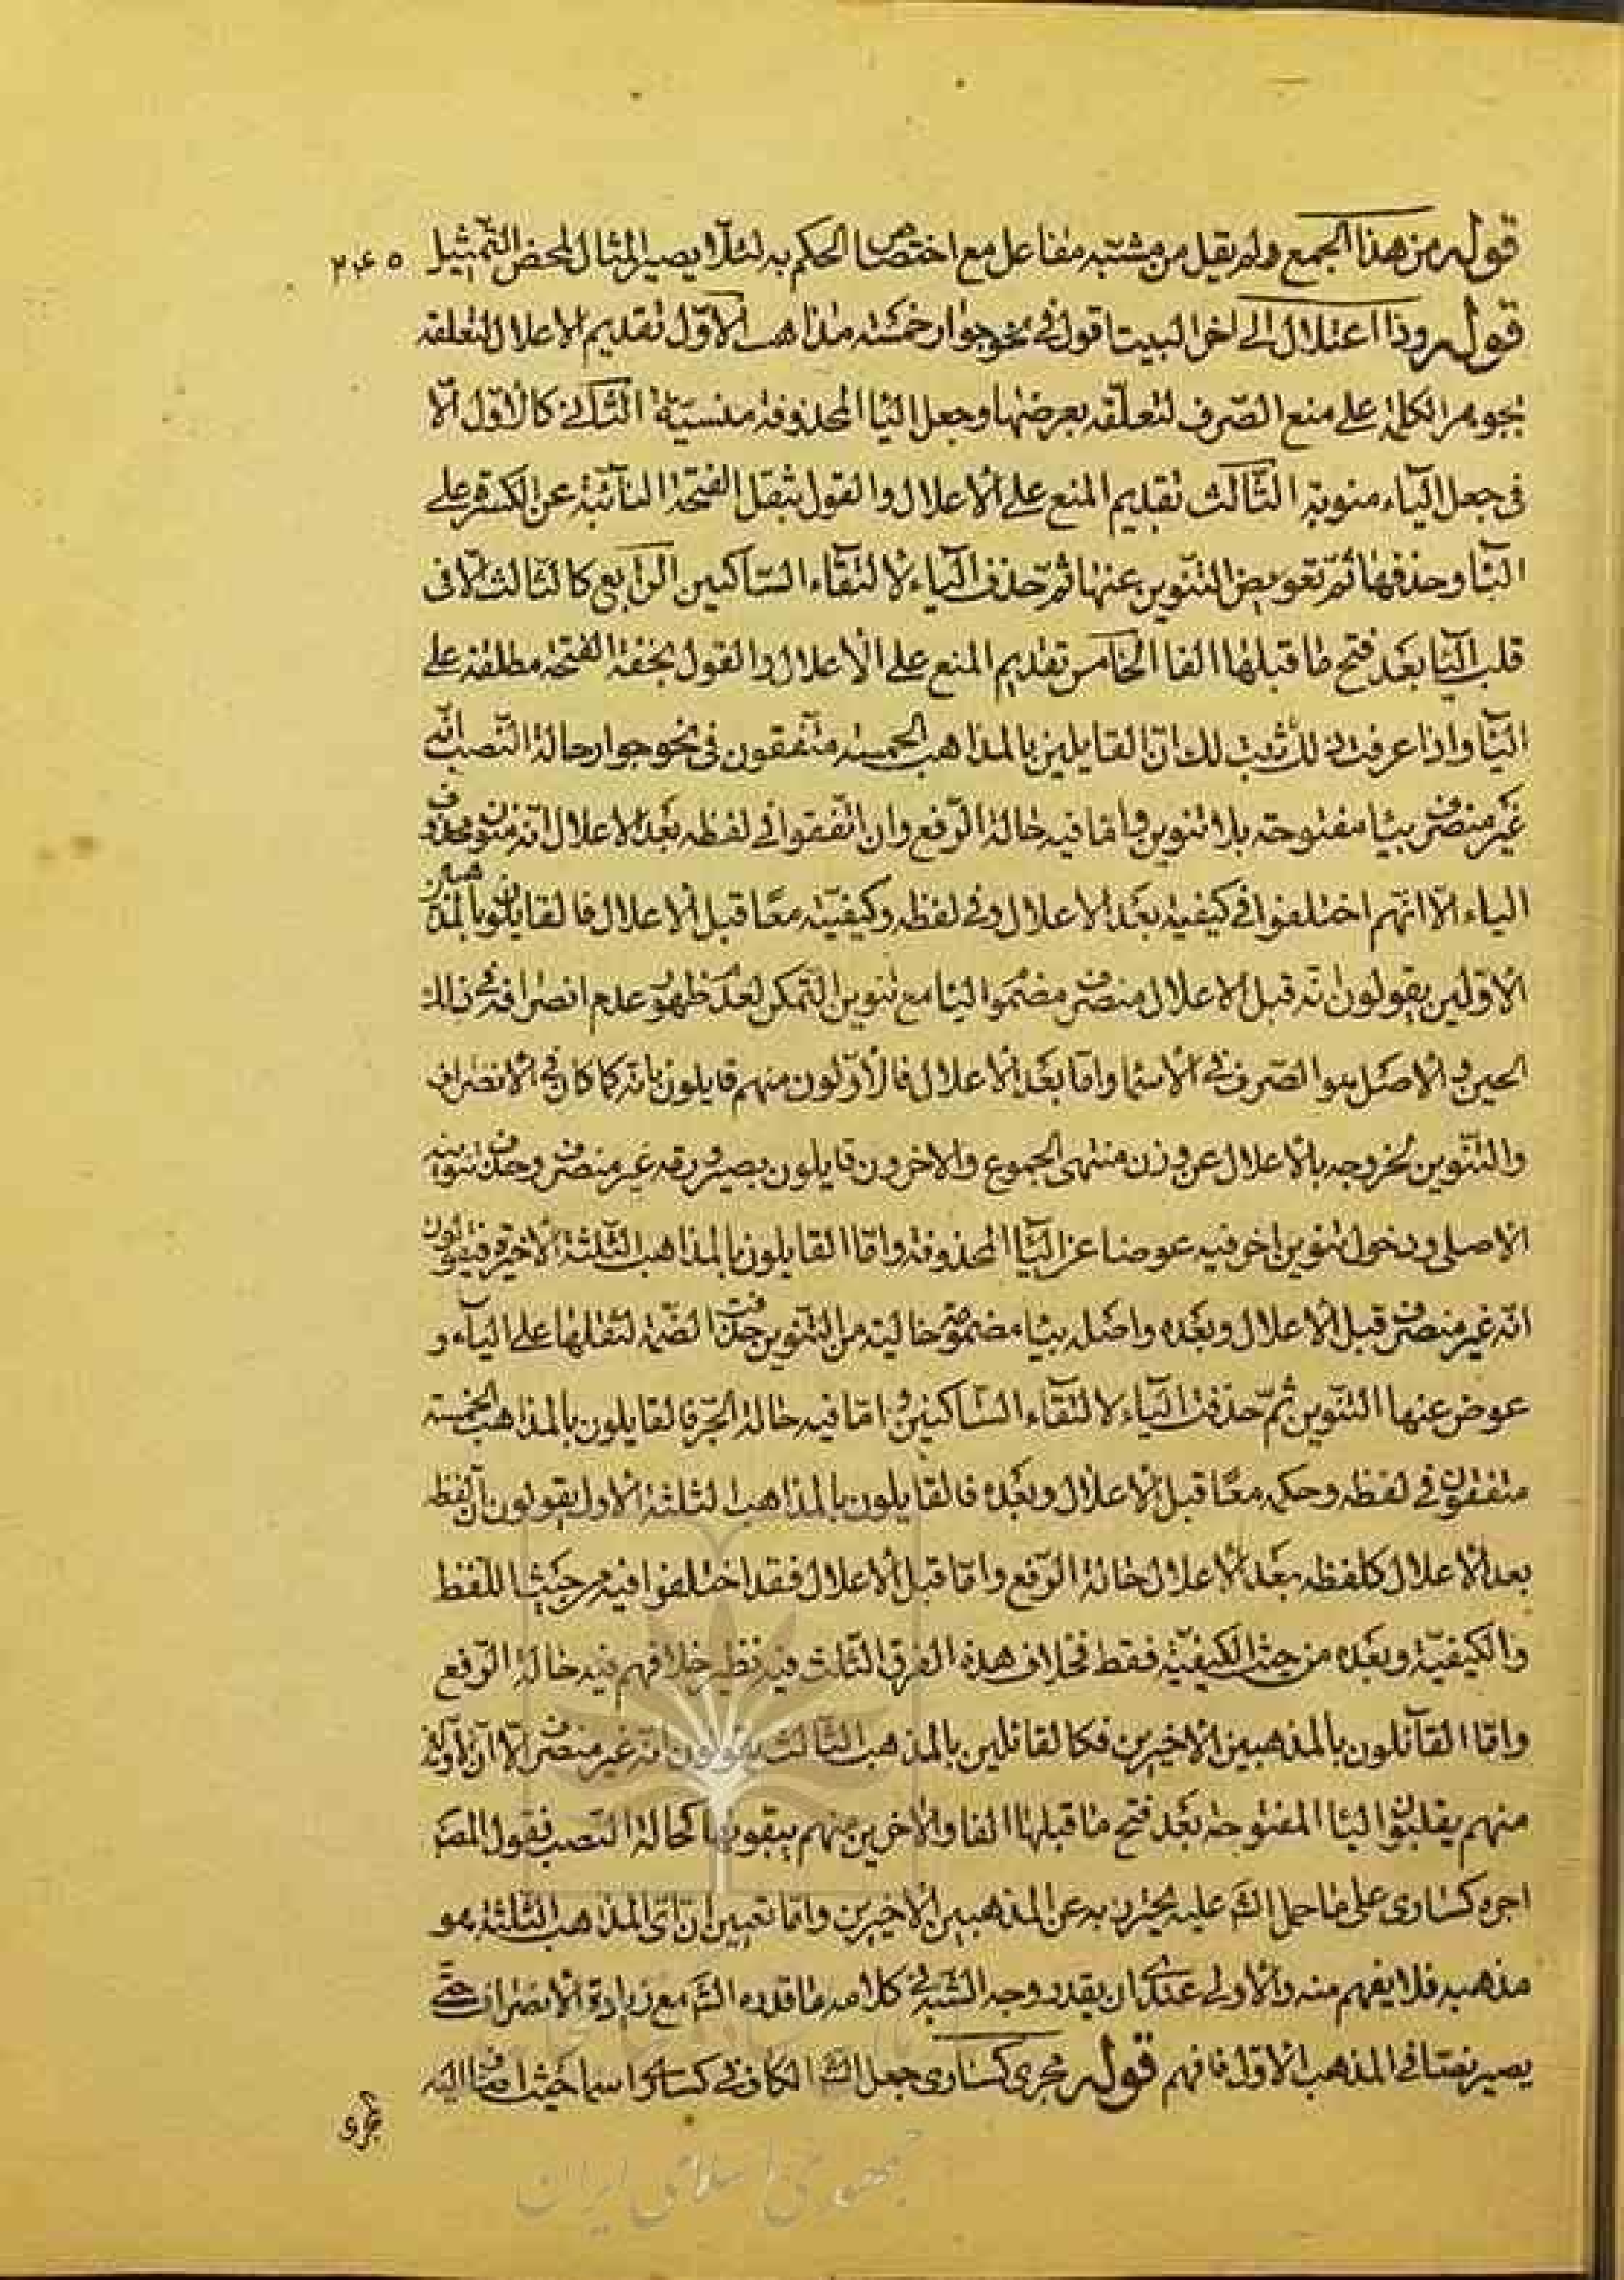 قوله من هذا الجمع ولم يقل من مشتبه مفاعل مع اختصاص الحكم به لئلا يصير المثال لمحض التمثيل
قوله وذا اعتلال الى اخر البيت اقول في نحو جوار خمسة مذاهب الاول تقديم الاعلال لتعلقه
بجوهر الكلمة على منع الصرف لتعلقه بعرضها وجعل اليا المحذوفة منسية الثاني كالاول الا
فى جعل الياء منوية الثالث تقديم المنع على الاعلال والقول بثقل الفتحة النائبة عن الكسرة على
اليا وحذفها ثم تعويض التنوين عنها ثم حذف الياء لالتقاء الساكنين الرابع كالثالث الا فى
قلب اليا بعد فتح ما قبلها الفا الخامس تقديم المنع على الاعلال والقول بخفة الفتحة مطلقة على
اليا واذا عرفت ذلك ثبت لك ان القايلين بالمذاهب الخمسة متفقون فى نحو جوار حالة النصب انه
غير منصرف بيا مفتوحة بلا تنوين واما فيه حالة الرفع وان اتفقوا في لفظه بعد الاعلال انه منون محذوف
الياء الا انهم اختلفوا في كيفيته بعد الاعلال وفي لفظه وكيفيته معا قبل الاعلال فالقايلون بالمذهبين
الاولين يقولون انه قبل الاعلال منصرف مضموم اليا مع تنوين التمكن لعدم ظهور عدم انصرافه في ذلك
الحين و الاصل هو الصرف في الاسما واما بعد الاعلال فالاولون منهم قايلون بانه كما كان في الانصراف
والتنوين لخروجه بالاعلال عن وزن منتهى الجموع والاخرون قايلون بصيرورته غير منصرف وحذف تنوينه
الاصلى ودخول تنوين اخر فيه عوضا عن اليا المحذوفة واما القايلون بالمذاهب الثلثة الاخيرة فيقولون
انه غير منصرف قبل الاعلال وبعده واصله بيا مضمومة خالية من التنوين حذفت الضمة لثقلها على الياء و
عوض عنها التنوين ثم حذفت الياء لالتقاء الساكنين واما فيه حالة الجر فالقايلون بالمذاهب الخمسة
متفقون في لفظه وحكمه معا قبل الاعلال وبعده فالقايلون بالمذاهب الثلثة الاول يقولون ان لفظه
بعد الاعلال كلفظه بعد الاعلال حالة الرفع واما قبل الاعلال فقد اختلفوا فيه من حيث اللفظ
والكيفية وبعده من حيث الكيفية فقط فخلاف هذه الفرق الثلث فيه نظير خلافهم فيه حالة الرفع
واما القائلون بالمذهبين الاخيرين فكالقائلين بالمذهب الثالث يقولون انه غير منصرف الا ان الاولين
منهم يقلبون اليا المفتوحة بعد فتح ما قبلها الفا والاخرين منهم يبقونها كحالة النصب فقول المص
اجره كسارى على ما حمل الش عليه يحترز به عن المذهبين الاخيرين واما تعيين ان اى المذاهب الثلثة هو
مذهبه فلا يفهم منه والاولى عندى ان يقدر وجه الشبه في كلامه ما قدره الش مع زيادة الانصراف حتى
يصير نصا في المذهب الاول فافهم قوله مجرى كسارى جعل الش الكاف في كسارى اسما حيث اضاف اليه
مجرى